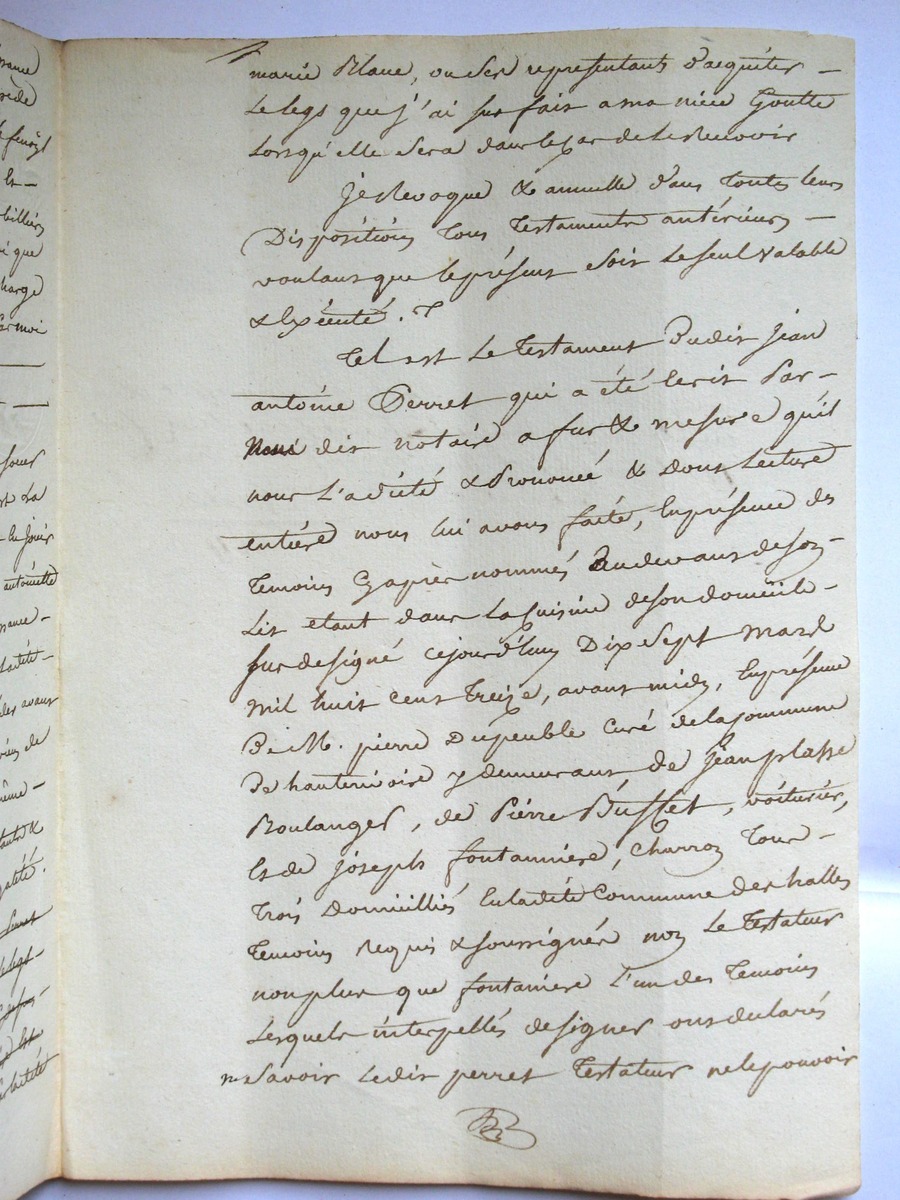 marie Blanc, ou ses representants d'acquiter –
Le legs que j'ai sus fait a ma niéce Goutte
Lorsqu'elle sera dans le cas de Le Recevoir
je Revoque & annulle dans toutes leurs
Dispositions tous Testaments antérieurs –
voulant que le présent soit Le seul valable
& Exécuté.
Tel est Le Testament Dudit jean
antoine Perret qui a été Ecrit Par –
Nous dit notaire a fur & mesure qu'il
nous L'a dicté & Prononcé & dont Lecture
entière nous lui avons faite, En présence des
Temoins cy après nommés Au devant de son –
Lit etant dans La Cuisine de son domicile –
sus designé cejourd'huy Dix sept mars
mil huit cent treize, avant midy, En présence
De M. pierre Dupeuble Curé de la Commune
De hauterivoire y demeurant de jean plasse
Boulanger, de Pierre Busset, voiturier,
Et de joseph fontanière, charron tous –
Trois Domiciliés En ladite Commune des halles
Temoins Requis & soussignés non Le Testateur
non plus que fontaniere L'un des Temoins
Lesquels interpellés de signer ont declarés
savoir Ledit perret Testateur ne le pouvoir
mance
cède
Et –
billiers
i que
charge
Par moi
jours
et La
antoinette
avant
de
même –
Legs –